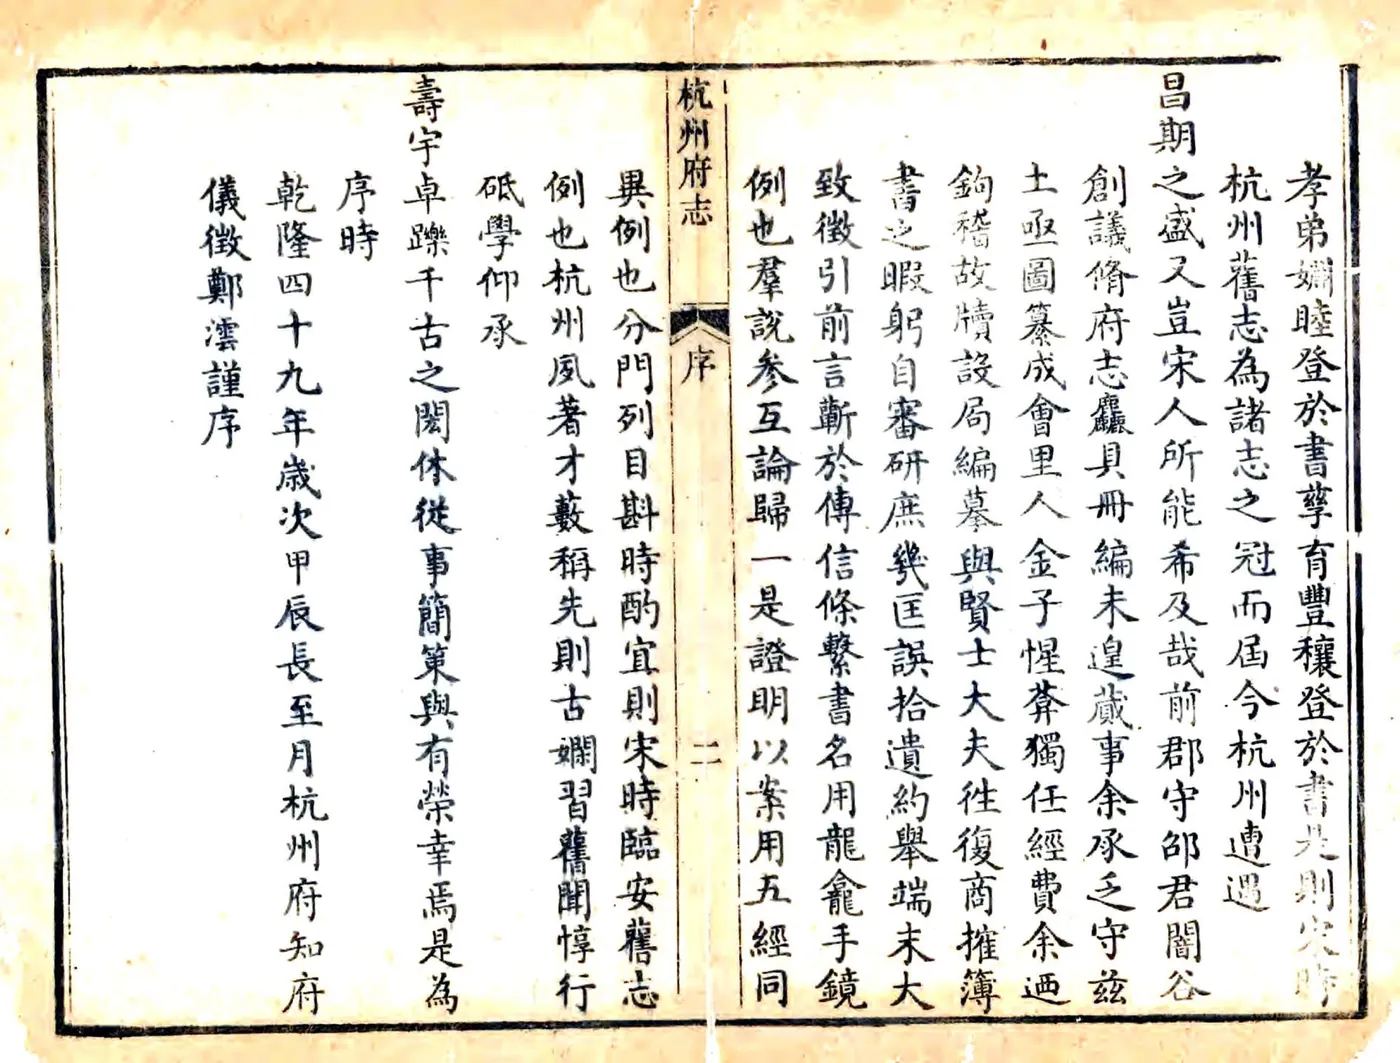 孝弟嫻睦登於書孳育豐穰登於書是則宋時
杭州舊志為諸志之冠而届今杭州遭遇
昌期之盛又豈宋人所能希及哉前郡守邵君闇谷
創議脩府志麤具冊編未遑蕆事余承乏守茲
土亟圖纂成會里人金子惺葊獨任經費余迺
鉤稽故牘設局編摹與賢士大夫徃復商搉簿
書之暇躬自審研庶幾匡誤拾遺約舉端末大
致徵引前言蘄於傳信條繫書名用龍龕手鏡
例也羣說參互論歸一是證明以案用五經同
杭州府志
序
二
異例也分門列目斟時酌宜則宋時臨安舊志
例也杭州夙著才藪稱先則古嫻習舊聞惇行
砥學仰承
壽宇卓躒千古之閎休從事簡策與有榮幸焉是為
序時
乾隆四十九年歲次甲辰長至月杭州府知府
儀徵鄭澐謹序